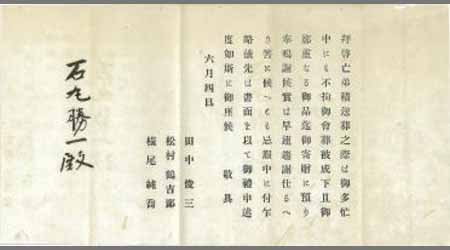 拝啓亡弟積送葬之際は御多忙
中にも不拘御會葬被成下且御
鄭重なる御品迄御寄贈に預り
奉鳴謝候實は早速趨謝仕るへ
き筈に候へとも忌服中に付乍
略儀先は書面を以て御禮申述
度如斯に御座候 敬具
六月四日
田中俊三
松村鶴吉郎
横尾純喬
石丸勝一殿